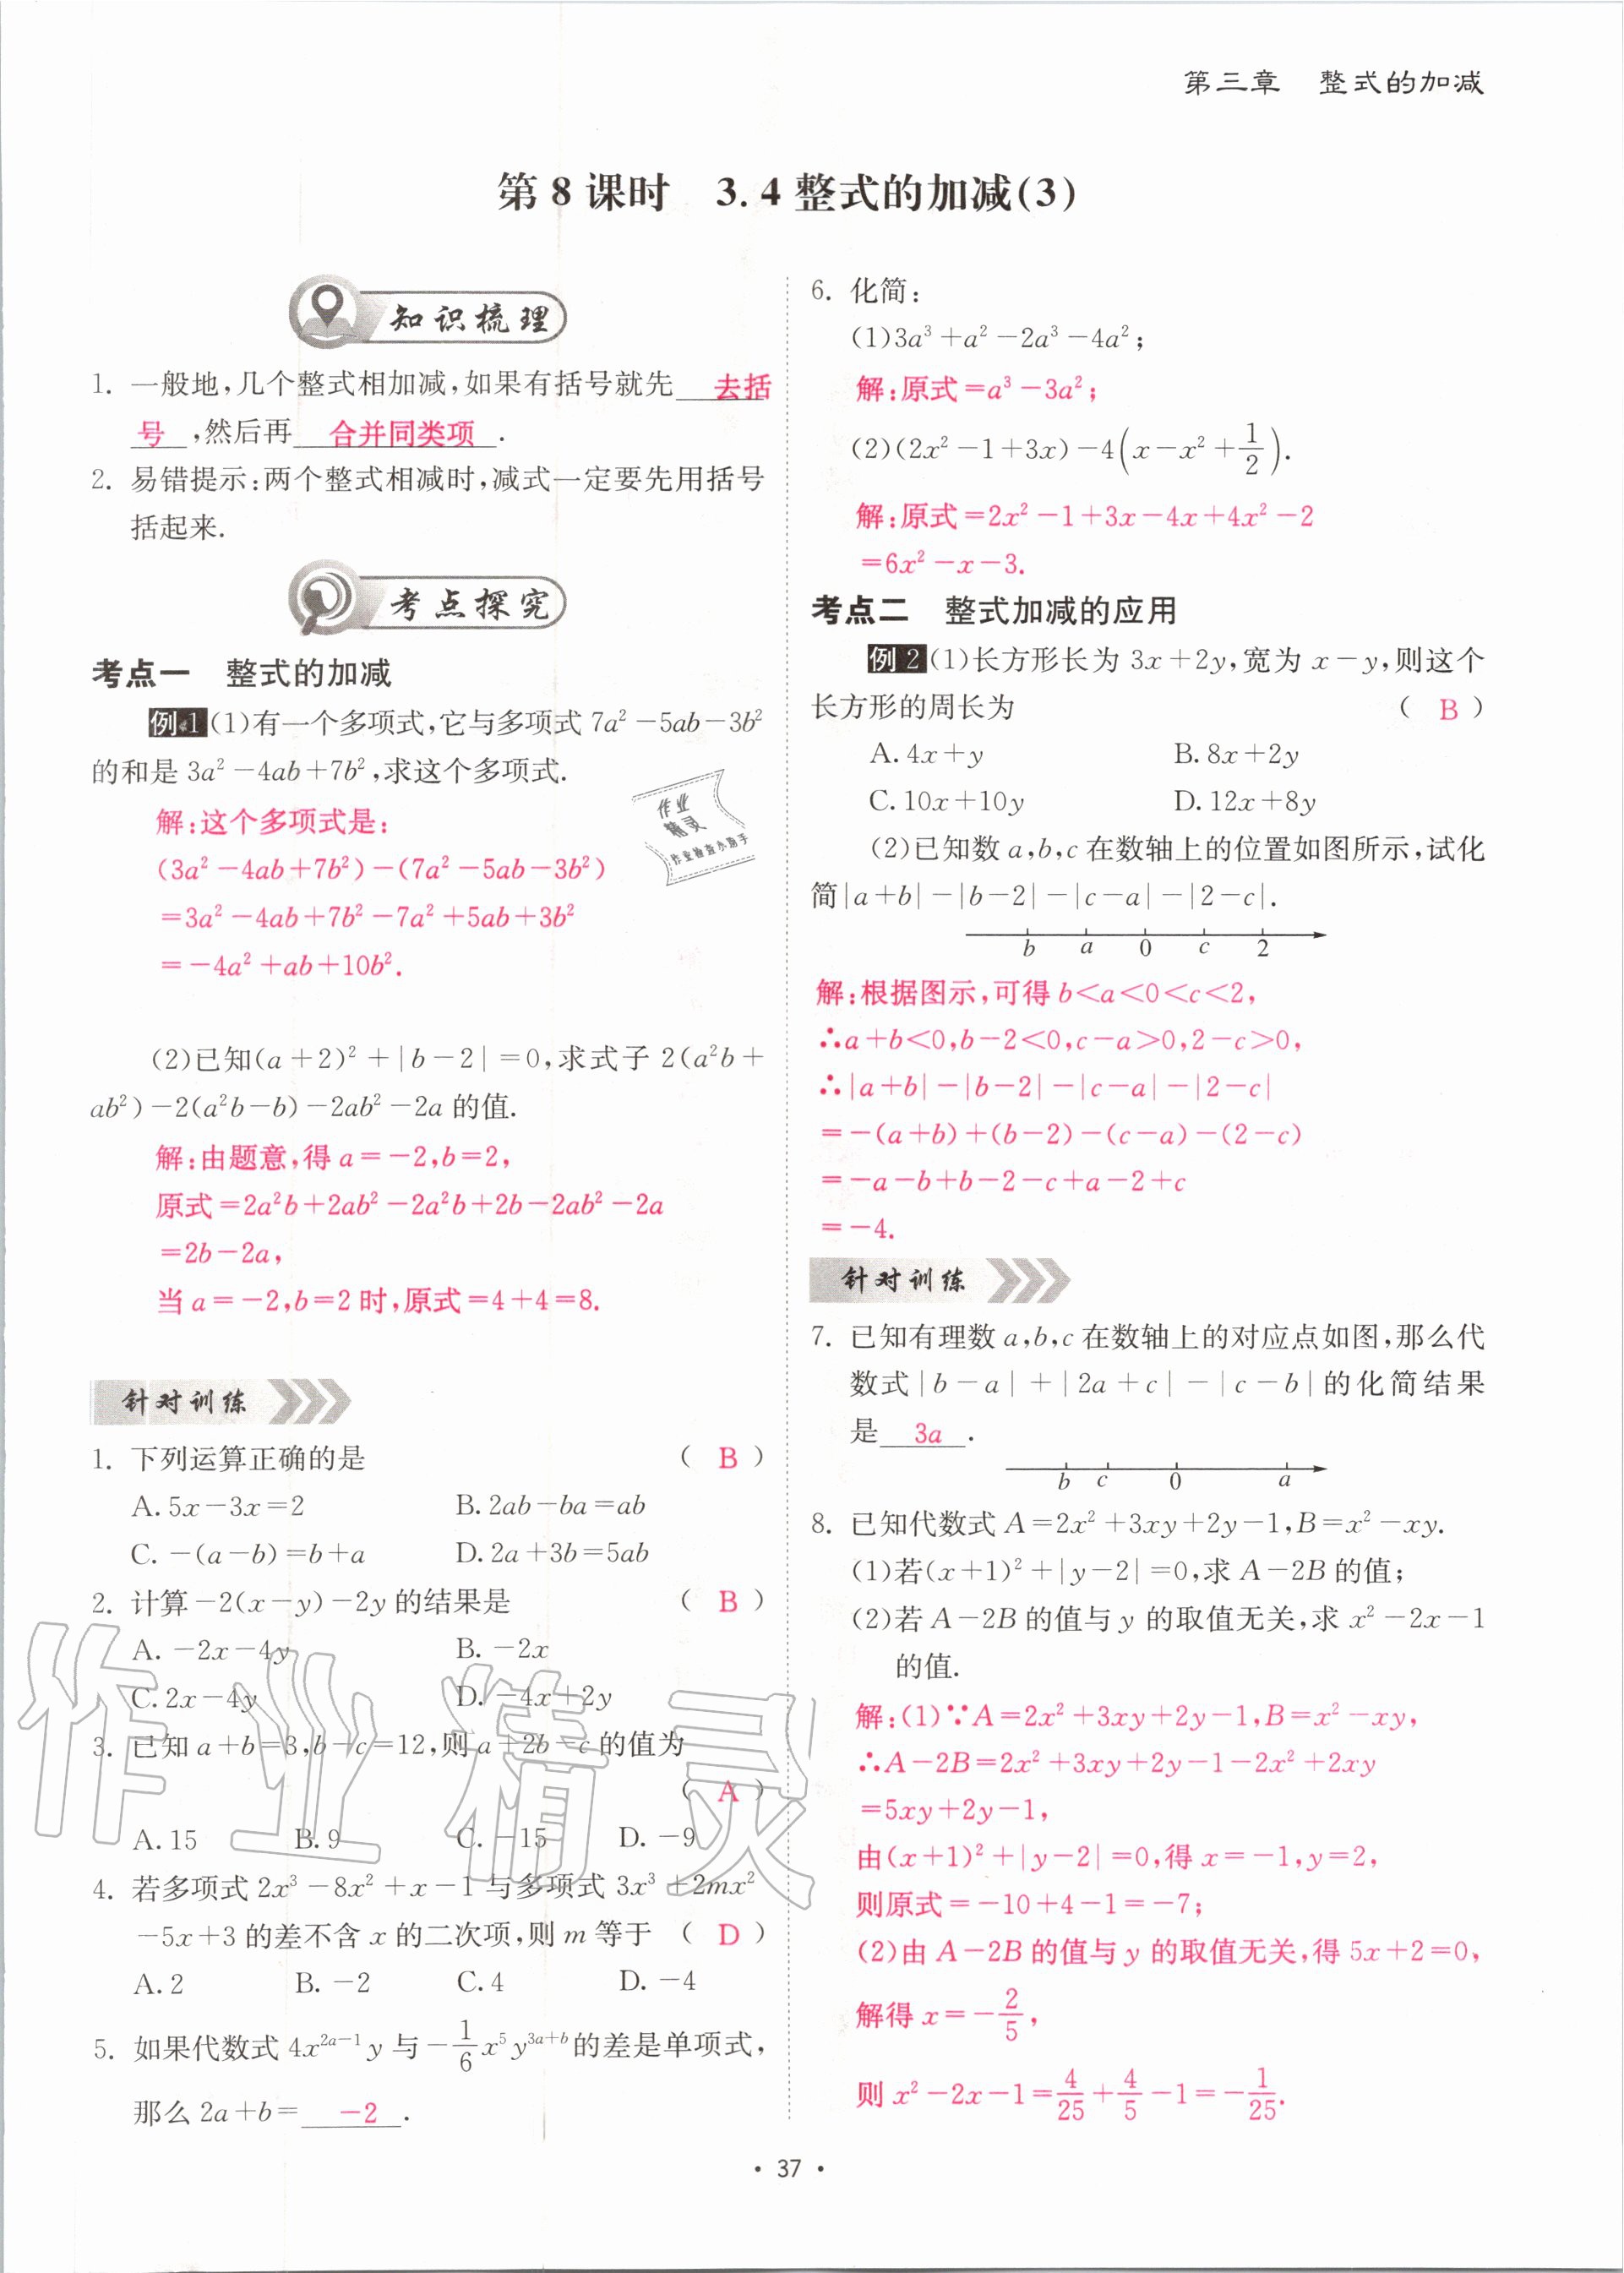 第三章　整式的加减
第 8 课时　3.4 整式的加减(3)
知识梳理
1. 一般地,几个整式相加减,如果有括号就先 去括
号 ,然后再 合并同类项 .
2. 易错提示:两个整式相减时,减式一定要先用括号
括起来.
考点探究
考点一　整式的加减
例 1 (1)有一个多项式,它与多项式 7a²-5ab-3b²
的和是 3a²-4ab+7b²,求这个多项式.
解:这个多项式是:
(3a²-4ab+7b²)-(7a²-5ab-3b²)
=3a²-4ab+7b²-7a²+5ab+3b²
=-4a²+ab+10b².
(2)已知(a+2)²+|b-2|=0,求式子 2(a²b+
ab²)-2(a²b-b)-2ab²-2a 的值.
解:由题意,得 a=-2,b=2,
原式=2a²b+2ab²-2a²b+2b-2ab²-2a
=2b-2a,
当 a=-2,b=2 时,原式=4+4=8.
针对训练
1. 下列运算正确的是 ( B )
A. 5x-3x=2 B. 2ab-ba=ab
C. -(a-b)=b+a D. 2a+3b=5ab
2. 计算-2(x-y)-2y 的结果是 ( B )
A. -2x-4y B. -2x
C. 2x-4y D. -4x+2y
3. 已知 a+b=3,b-c=12,则 a+2b-c 的值为
( A )
A. 15 B. 9 C. -15 D. -9
4. 若多项式 2x³-8x²+x-1 与多项式 3x³+2mx²
-5x+3 的差不含 x 的二次项,则 m 等于 ( D )
A. 2 B. -2 C. 4 D. -4
5. 如果代数式 4x^{2a-1}y 与-\frac{1}{6}x⁵y^{3a+b}的差是单项式,
那么 2a+b= -2 .
6. 化简:
(1)3a³+a²-2a³-4a²;
解:原式=a³-3a²;
(2)(2x²-1+3x)-4(x-x²+\frac{1}{2}).
解:原式=2x²-1+3x-4x+4x²-2
=6x²-x-3.
考点二　整式加减的应用
例 2 (1)长方形长为 3x+2y,宽为 x-y,则这个
长方形的周长为 ( B )
A. 4x+y B. 8x+2y
C. 10x+10y D. 12x+8y
(2)已知数 a,b,c 在数轴上的位置如图所示,试化
简|a+b|-|b-2|-|c-a|-|2-c|.
b a 0 c 2
解:根据图示,可得 b<a<0<c<2,
∴a+b<0,b-2<0,c-a>0,2-c>0,
∴|a+b|-|b-2|-|c-a|-|2-c|
=-(a+b)+(b-2)-(c-a)-(2-c)
=-a-b+b-2-c+a-2+c
=-4.
针对训练
7. 已知有理数 a,b,c 在数轴上的对应点如图,那么代
数式|b-a|+|2a+c|-|c-b|的化简结果
是 3a .
b c 0 a
8. 已知代数式 A=2x²+3xy+2y-1,B=x²-xy.
(1)若(x+1)²+|y-2|=0,求 A-2B 的值;
(2)若 A-2B 的值与 y 的取值无关,求 x²-2x-1
的值.
解:(1)∵A=2x²+3xy+2y-1,B=x²-xy,
∴A-2B=2x²+3xy+2y-1-2x²+2xy
=5xy+2y-1,
由(x+1)²+|y-2|=0,得 x=-1,y=2,
则原式=-10+4-1=-7;
(2)由 A-2B 的值与 y 的取值无关,得 5x+2=0,
解得 x=-\frac{2}{5},
则 x²-2x-1=\frac{4}{25}+\frac{4}{5}-1=-\frac{1}{25}.
• 37 •
作业
精灵
作业精灵